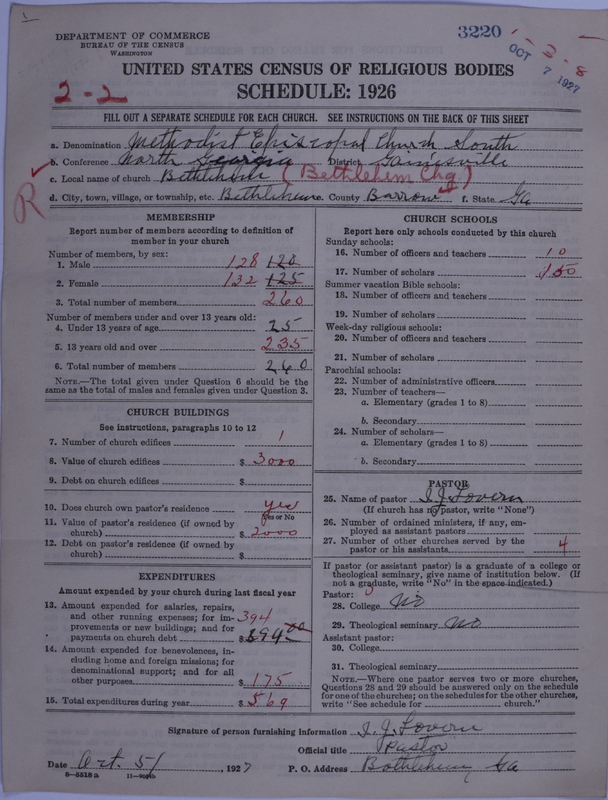 1
DEPARTMENT OF COMMERCE
BUREAU OF THE CENSUS
WASHINGTON
3220
OCT 7 1927
1-3-8
UNITED STATES CENSUS OF RELIGIOUS BODIES
2-2
SCHEDULE: 1926
FILL OUT A SEPARATE SCHEDULE FOR EACH CHURCH. SEE INSTRUCTIONS ON THE BACK OF THIS SHEET
a. Denomination Methodist Episcopal Church South
b. Conference North Georgia District Gainesville
c. Local name of church Bethlehem (Bethlehem Chg)
R
d. City, town, village, or township, etc. Bethlehem e. County Barrow f. State Ga
MEMBERSHIP
Report number of members according to definition of
member in your church
Number of members, by sex:
1. Male 128 120
2. Female 132 125
3. Total number of members 260
Number of members under and over 13 years old:
4. Under 13 years of age 25
5. 13 years old and over 235
6. Total number of members 260
NOTE.—The total given under Question 6 should be
same as the total of males and females given under Question 3.
CHURCH BUILDINGS
See instructions, paragraphs 10 to 12
7. Number of church edifices 1
8. Value of church edifices $ 3000
9. Debt on church edifices $
10. Does church own pastor's residence yes
Yes or No
11. Value of pastor's residence (if owned by
church) $ 2000
12. Debt on pastor's residence (if owned by
church) $
EXPENDITURES
Amount expended by your church during last fiscal year
13. Amount expended for salaries, repairs,
and other running expenses; for im- 394
provements or new buildings; and for
payments on church debt $ 394.00
14. Amount expended for benevolences, in-
cluding home and foreign missions; for
denominational support; and for all
other purposes $ 175
15. Total expenditures during year $ 569
CHURCH SCHOOLS
Report here only schools conducted by this church
Sunday schools:
16. Number of officers and teachers 10
17. Number of scholars 150
Summer vacation Bible schools:
18. Number of officers and teachers
19. Number of scholars
Week-day religious schools:
20. Number of officers and teachers
21. Number of scholars
Parochial schools:
22. Number of administrative officers
23. Number of teachers—
a. Elementary (grades 1 to 8)
b. Secondary
24. Number of scholars—
a. Elementary (grades 1 to 8)
b. Secondary
PASTOR
25. Name of pastor I. J. Lovern
(If church has no pastor, write "None")
26. Number of ordained ministers, if any, em-
ployed as assistant pastors
27. Number of other churches served by the
pastor or his assistants 4
If pastor (or assistant pastor) is a graduate of a college or
theological seminary, give name of institution below. (If
not a graduate, write "No" in the space indicated.)
Pastor:
28. College No
29. Theological seminary No
Assistant pastor:
30. College
31. Theological seminary
NOTE.—Where one pastor serves two or more churches,
Questions 28 and 29 should be answered only on the schedule
for one of the churches; on the schedules for the other churches,
write "See schedule for church."
Signature of person furnishing information I. J. Lovern
Official title Pastor
Date Oct. 5, 1927 P. O. Address Bethlehem, Ga
8-5518a